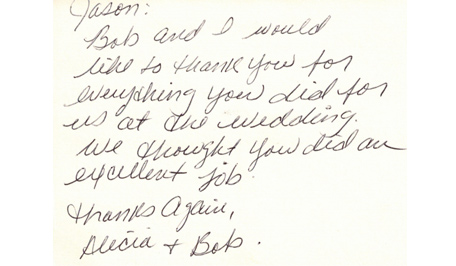 Jason:
Bob and I would
like to thank you for
everything you did for
us at the wedding.
We thought you did an
excellent job.
Thanks Again,
Alicia + Bob.